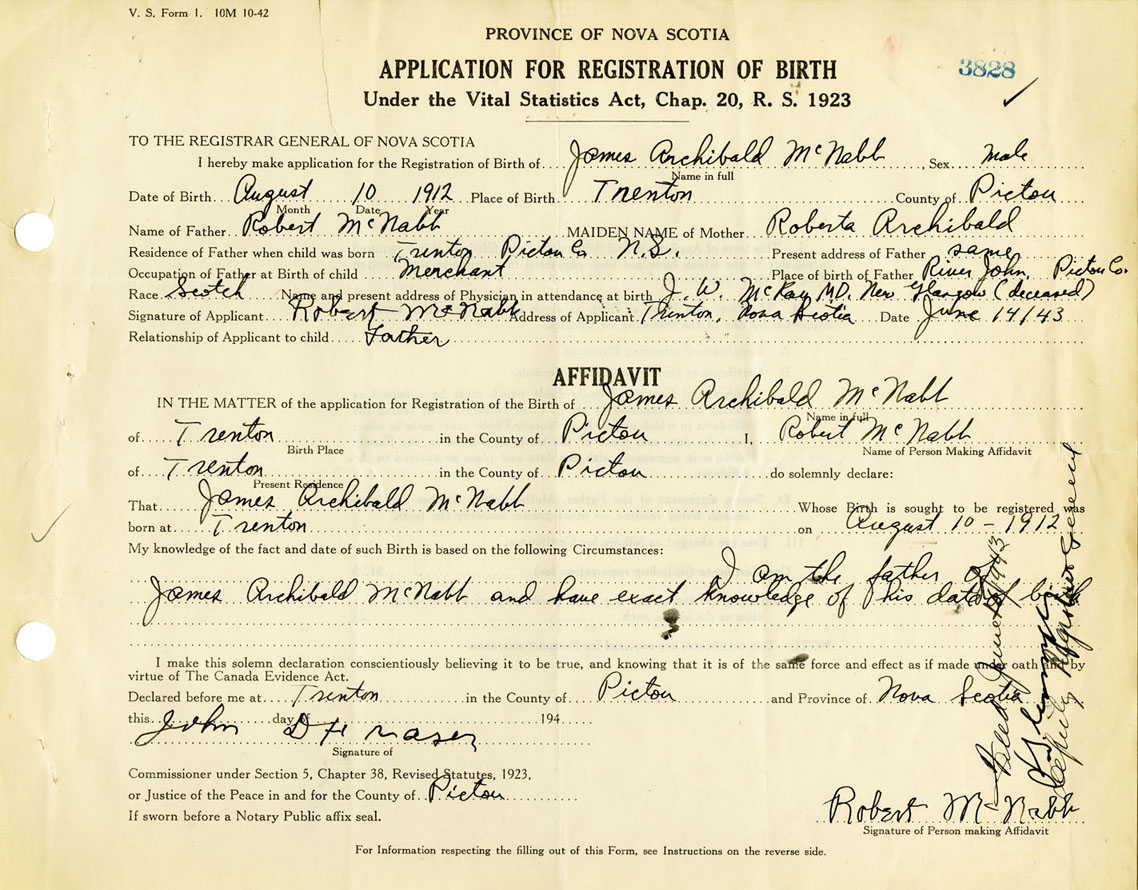 V. S. Form 1. 10M 10-42
PROVINCE OF NOVA SCOTIA
APPLICATION FOR REGISTRATION OF BIRTH
3828
Under the Vital Statistics Act, Chap. 20, R. S. 1923
TO THE REGISTRAR GENERAL OF NOVA SCOTIA
I hereby make application for the Registration of Birth of James Archibald McNabb, Sex Male
Name in full
Date of Birth August 10 1912 Place of Birth Trenton County of Pictou
Month Date Year
Name of Father Robert McNabb MAIDEN NAME of Mother Roberta Archibald
Residence of Father when child was born Trenton Pictou Co N.S. Present address of Father same
Occupation of Father at Birth of child Merchant Place of birth of Father River John, Pictou Co.
Race Scotch Name and present address of Physician in attendance at birth J. W. McKay M.D. New Glasgow (deceased)
Signature of Applicant Robert McNabb Address of Applicant Trenton, Nova Scotia Date June 14/43
Relationship of Applicant to child Father
AFFIDAVIT
IN THE MATTER of the application for Registration of the Birth of James Archibald McNabb
Name in full
of Trenton in the County of Pictou I, Robert McNabb
Birth Place Name of Person Making Affidavit
of Trenton in the County of Pictou do solemnly declare:
Present Residence
That James Archibald McNabb Whose Birth is sought to be registered was
born at Trenton on August 10 - 1912
My knowledge of the fact and date of such Birth is based on the following Circumstances:
I am the father of
James Archibald McNabb and have exact knowledge of his date of birth
I make this solemn declaration conscientiously believing it to be true, and knowing that it is of the same force and effect as if made under oath and by
virtue of The Canada Evidence Act.
Declared before me at Trenton in the County of Pictou and Province of Nova Scotia
this day of 194
John D Fraser
Signature of
Commissioner under Section 5, Chapter 38, Revised Statutes, 1923,
or Justice of the Peace in and for the County of Pictou
If sworn before a Notary Public affix seal.
Robert McNabb
Signature of Person making Affidavit
For Information respecting the filling out of this Form, see Instructions on the reverse side.
Filed June 1943
Deputy Registrar General